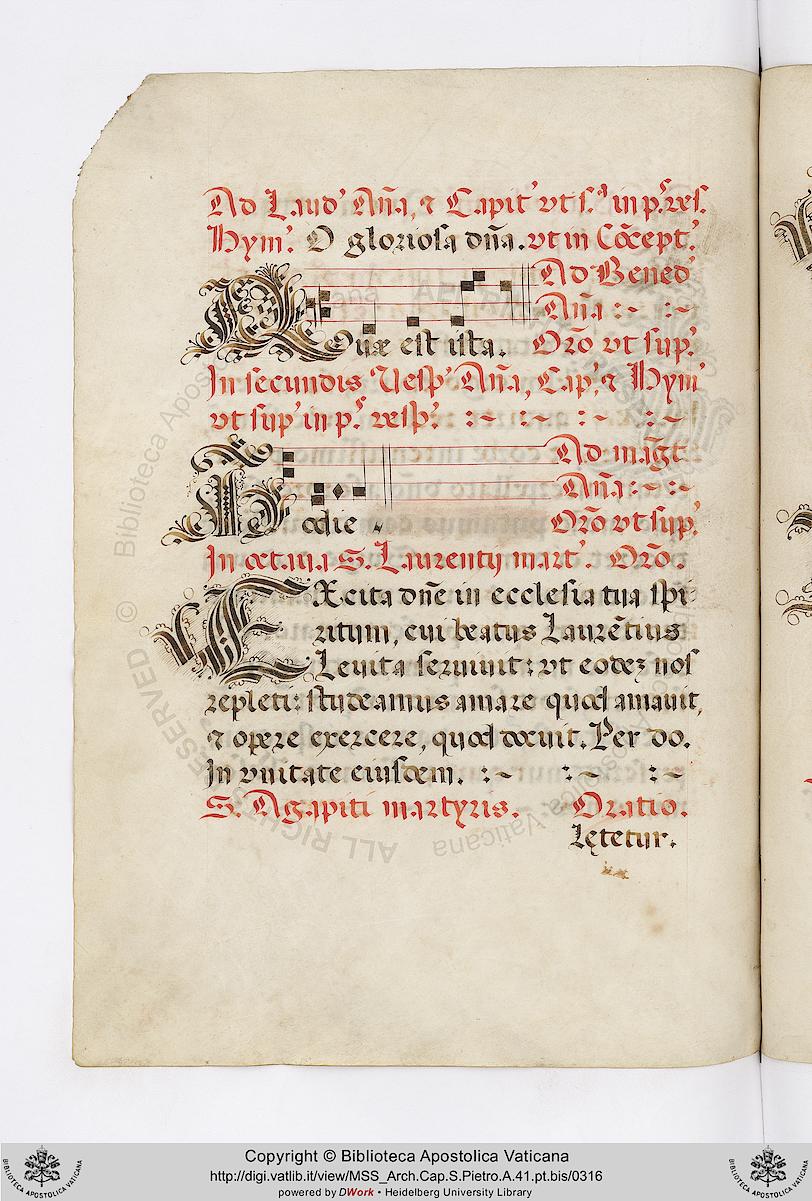 Ad Laud' Añа, ⁊ Capit' vt s.ª in p.ˢ ves.
Hym.' O gloriosa dña. vt in Cõcept.'
Ad Bened'
Aña :~ :~
Quæ est ista. Orõ vt sup.'
In secundis Vesp.' Aña, Cap.' ⁊ Hym'
vt sup' in p.ˢ vesp.' :~ :~ :~ :~
Ad mag̃t.
Aña :~ :~
Hodie Orõ vt sup.'
In octaua S. Laurentij mart.' Orõ.
EXcita dñe in ecclesia tua spi-
ritum, cui beatus Laurẽtius
Leuita seruiuit: vt eodeꝫ nos
repleti: studeamus amare quod amauit,
⁊ opere exercere, quod docuit. Per do.
In vnitate eiusdem. :~ :~ :~
S. Agapiti martyris. Oratio.
Lętetur.
Copyright © Biblioteca Apostolica Vaticana
http://digi.vatlib.it/view/MSS_Arch.Cap.S.Pietro.A.41.pt.bis/0316
powered by DWork • Heidelberg University Library
BIBLIOTECA APOSTOLICA VATICANA
BIBLIOTECA APOSTOLICA VATICANA
© Biblioteca Apostolica Vaticana
ALL RIGHTS RESERVED